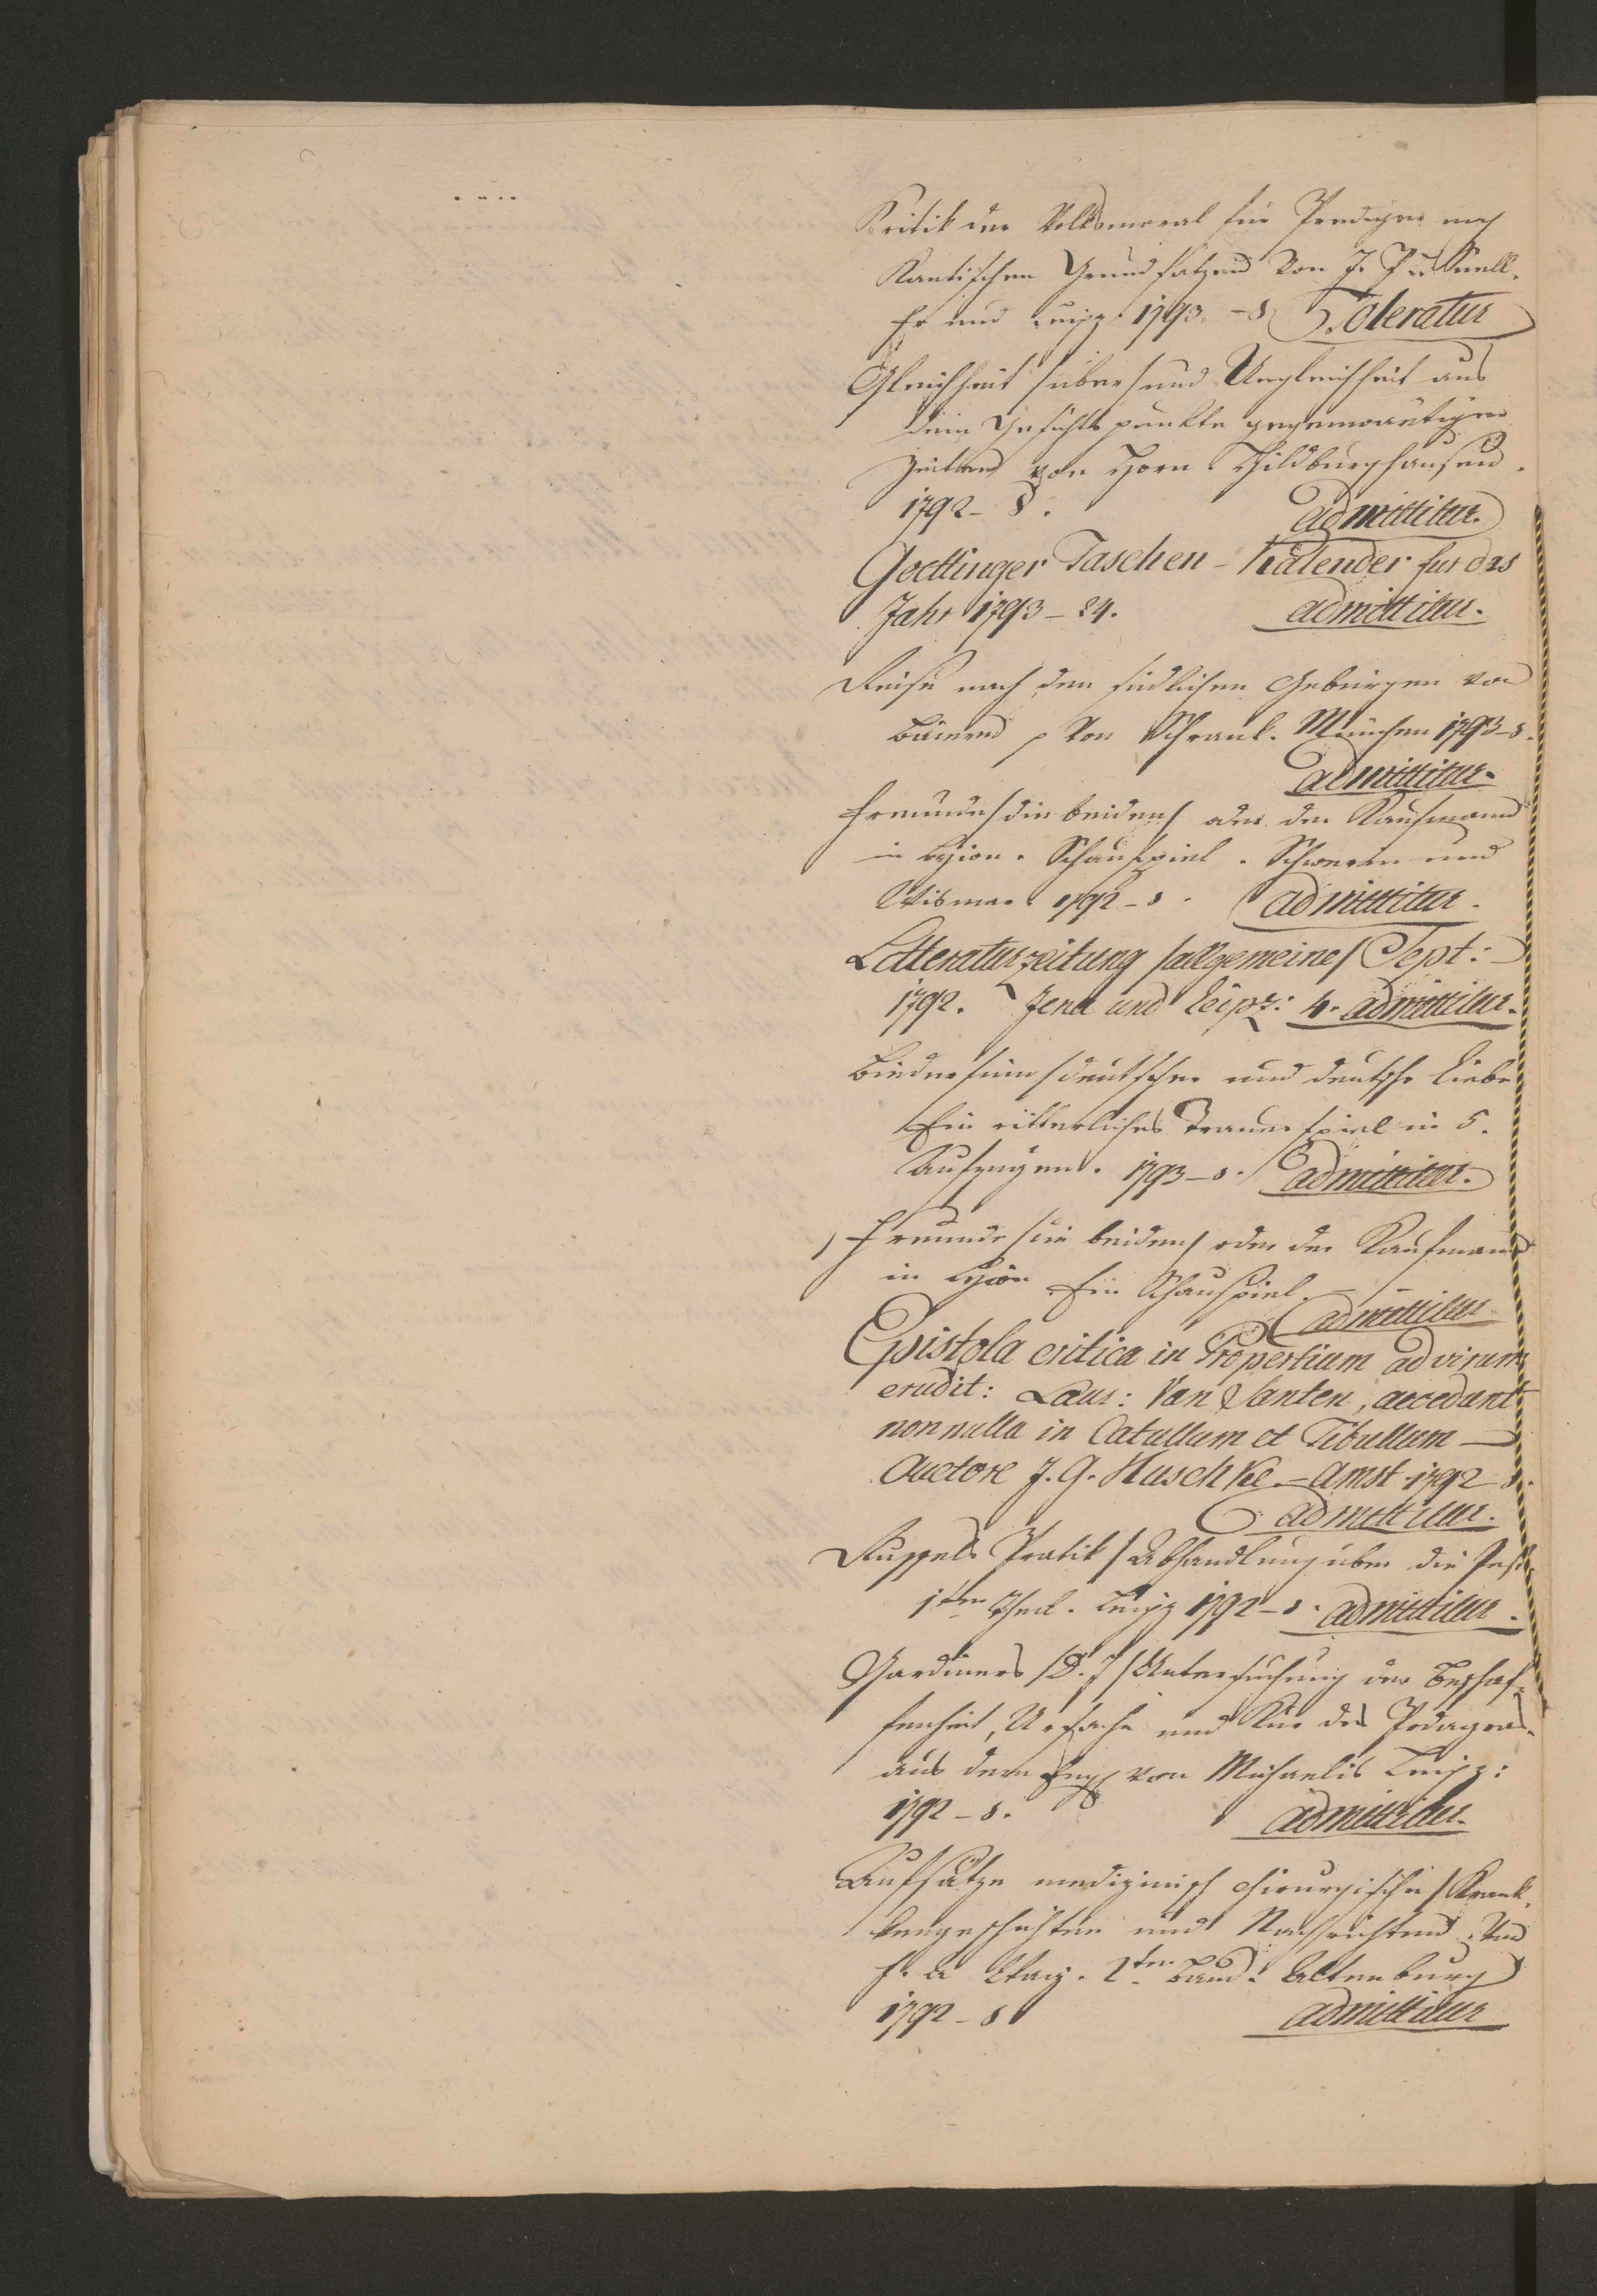 Kritik der Volksmoral für Prediger nach
Kantischen Grundsätzen von J. P. L. Snell.
Fr. und Leipz. 1793. - 8 Toleratur
Gleichheit /über/ und Ungleichheit aus
dem Gesichtspunkte gegenwärtiger
Zeiten von Horn. Hildburghausen.
1792 - 8. admittitur.
Goettinger Taschen - Kalender fur das
Jahr 1793 - 24. admittitur.
Reise nach den südlichen Gebürgen von
Baiern p von Schrank. München 1793 - 8.
admittitur.
Freunde /die beiden/ oder der Kaufmann
in Lyion. Schauspiel. Schwerin und
Wismar 1792 - 8. admittitur.
Litteraturzeitung /allgemeine/ Sept:
1792. Jena und Leipz: 4. admittitur.
Biedersinn /deutscher und deutsche Liebe
Ein ritterliches Trauerspiel in 5.
Aufzügen. 1793 - 8. admittitur.
Freunde /die beiden/ oder der Kaufmann
in Lyion Ein Schauspiel. -
admittitur
Epistola critica in Propertium ad virum
erudit: Laur: Van Santen, accedunt
nonnulla in Catullum et Tibullum -
Auctore J. G. Huschke. - Amst 1792 - 8.
admittitur.
Russels Patrik / Abhandlung über die Pest
1ter Theil. Leipz 1792 - 8. admittitur.
Gardiners /D. J/ Untersuchung der Beschaf-
fenheit, Ursache und Kur des Podagras.
aus dem Engl von Michaelis Leipz:
1792 - 8. admittitur.
Aufsätze medizinisch chirurgische / Krank-
kengeschichten und Nachrichten von
2ter Band. Altenburg
1792 - 8 admittitur